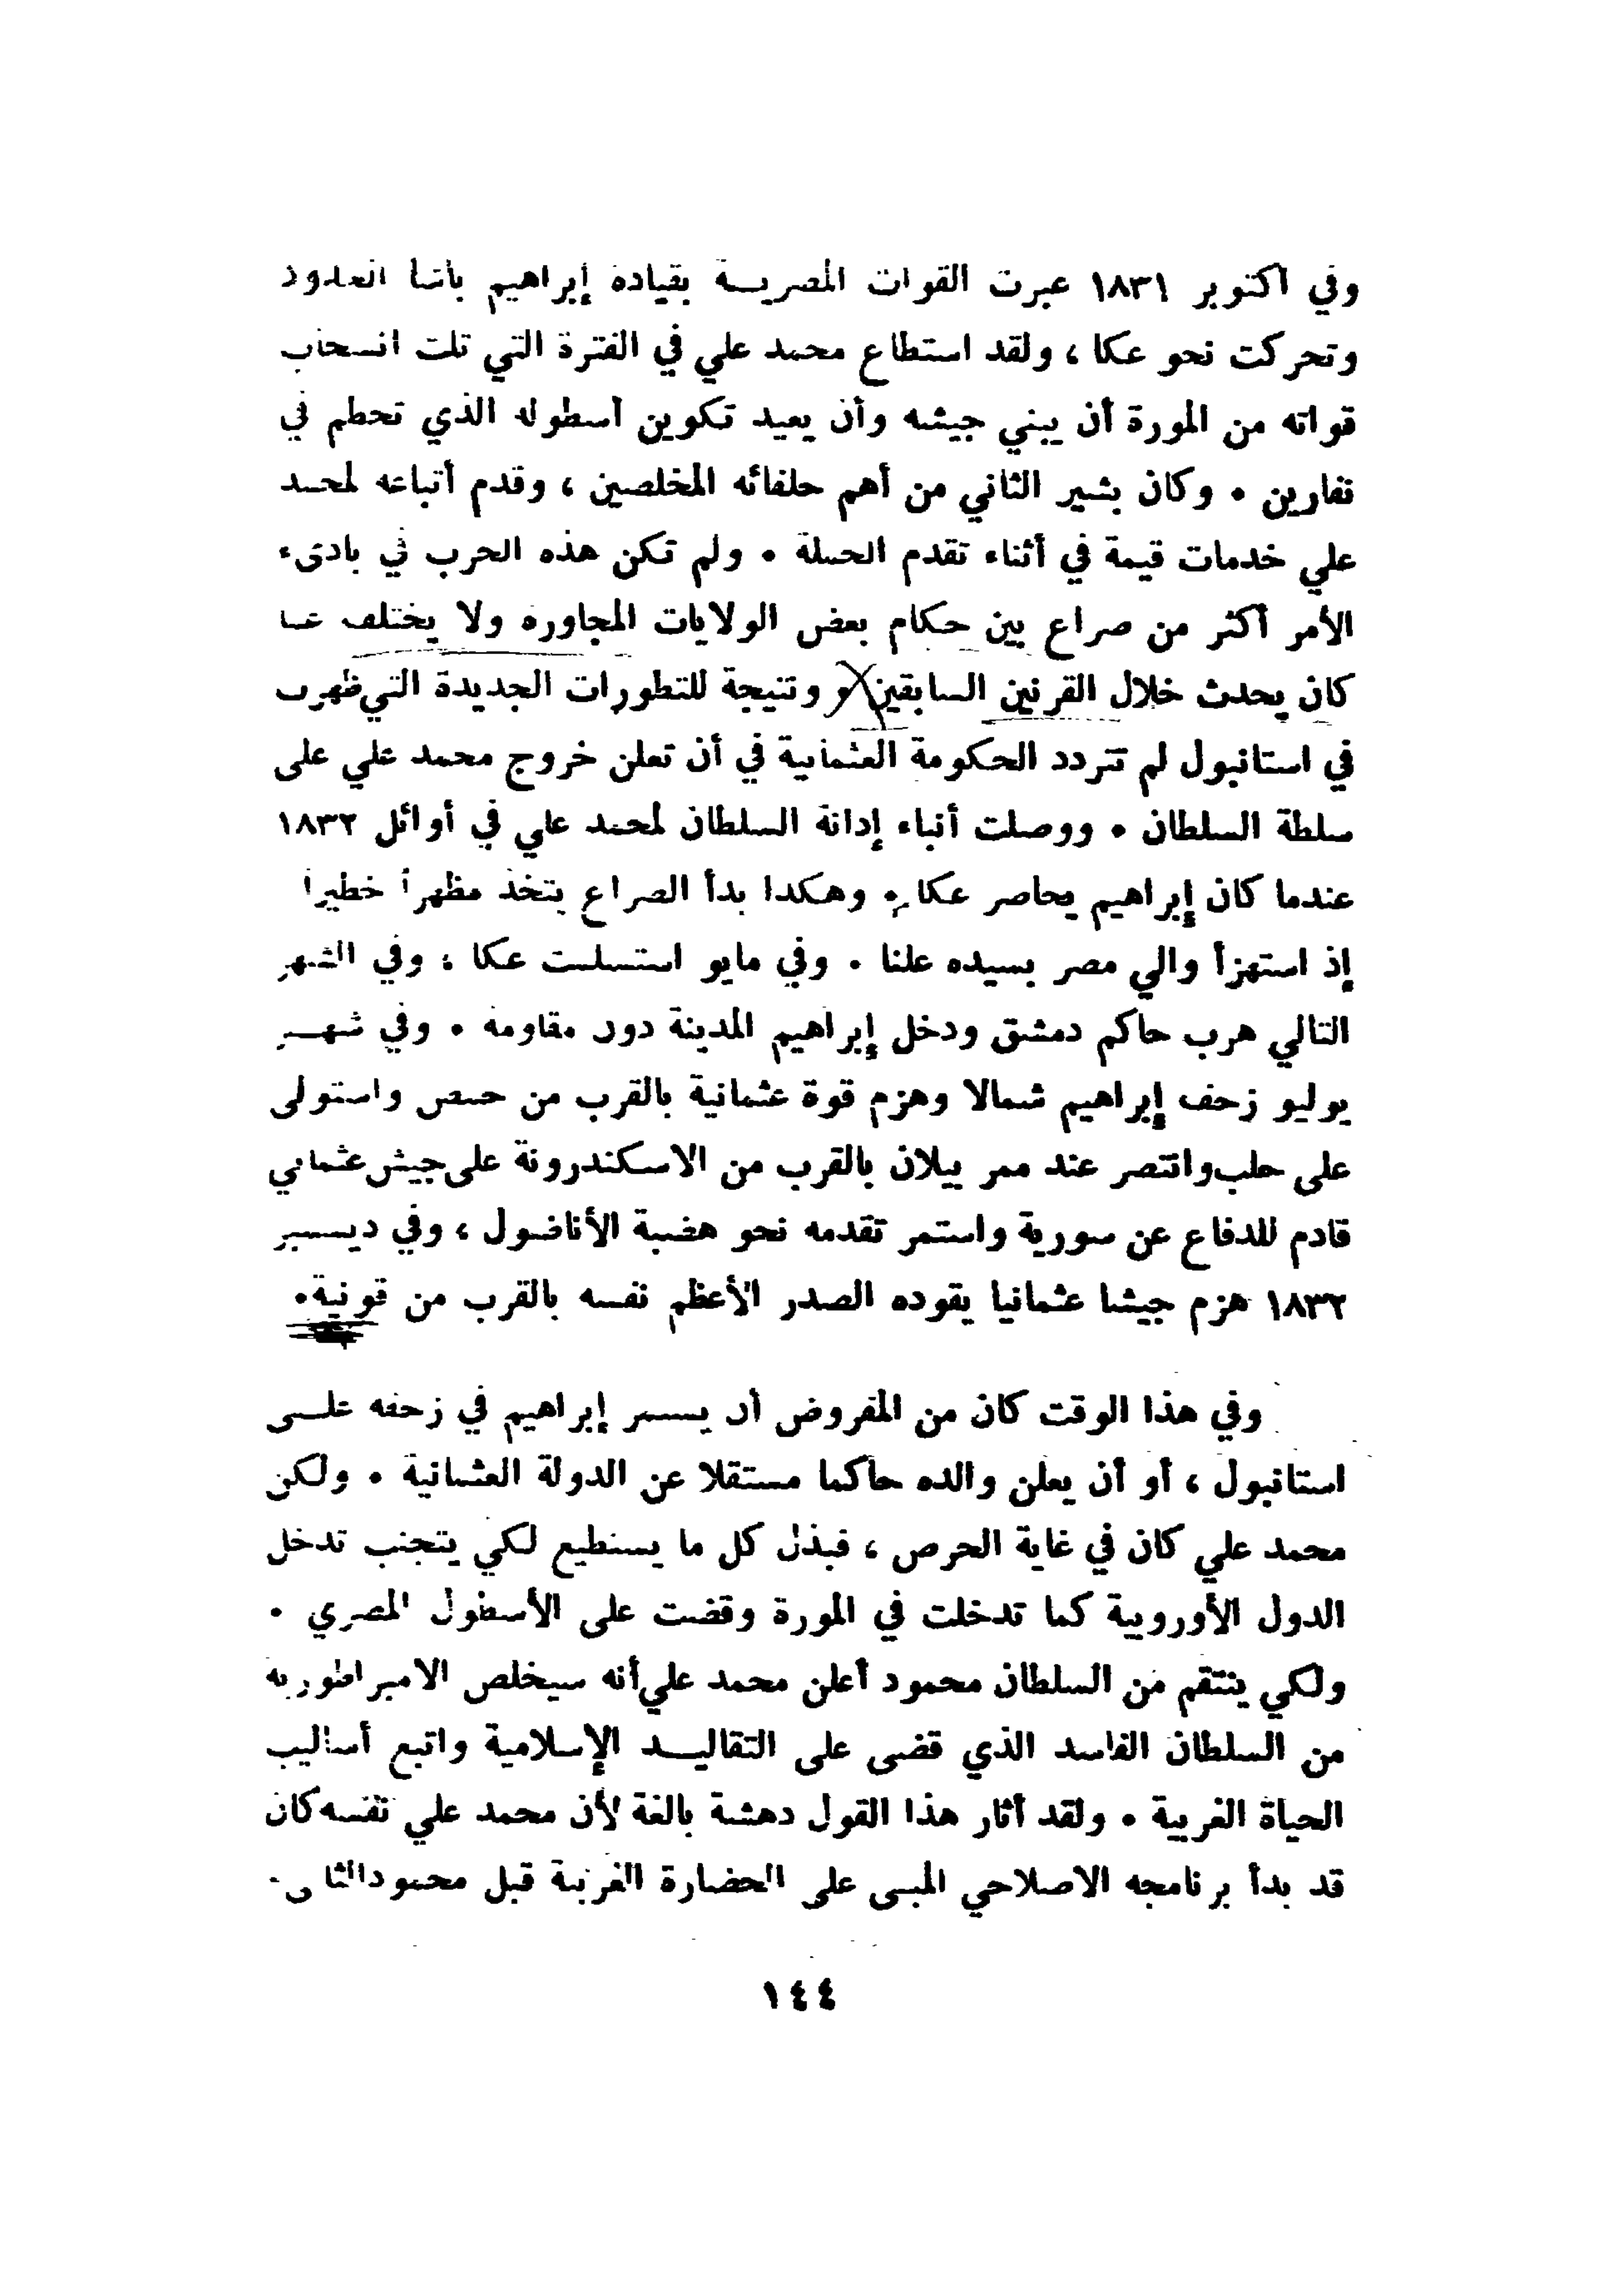 وفي أكتوبر ١٨٣١ عبرت القوات المصريــة بقيادة إبراهيم باشا الحدود
وتحركت نحو عكا ، ولقد استطاع محمد علي في الفترة التي تلت انسحاب
قواته من المورة أن يبني جيشه وأن يعيد تكوين أسطوله الذي تحطم في
نفارين • وكان بشير الثاني من أهم حلفائه المخلصين ، وقدم أتباعه لمحمد
علي خدمات قيمة في أثناء تقدم الحملة • ولم تكن هذه الحرب في بادىء
الأمر أكثر من صراع بين حكام بعض الولايات المجاورة ولا يختلف عما
كان يحدث خلال القرنين السابقين و ونتيجة للتطورات الجديدة التي ظهرت
في استانبول لم تتردد الحكومة العثمانية في أن تعلن خروج محمد علي على
سلطة السلطان • ووصلت أنباء إدانة السلطان لمحمد علي في أوائل ١٨٣٢
عندما كان إبراهيم يحاصر عكا • وهكذا بدأ الصراع يتخذ مظهراً خطيراً
إذ استهزأ والي مصر بسيده علنا • وفي مايو استسلمت عكا ؛ وفي الشهر
التالي هرب حاكم دمشق ودخل إبراهيم المدينة دون مقاومة • وفي شهــر
يوليو زحف إبراهيم شمالا وهزم قوة عثمانية بالقرب من حمص واستولى
على حلب وانتصر عند ممر بيلان بالقرب من الاسكندرونة على جيش عثماني
قادم للدفاع عن سورية واستمر تقدمه نحو هضبة الأناضول ، وفي ديسمبر
١٨٣٢ هزم جيشا عثمانيا يقوده الصدر الأعظم نفسه بالقرب من قونية•
وفي هذا الوقت كان من المفروض أن يستمر إبراهيم في زحفه علــى
استانبول ، أو أن يعلن والده حاكما مستقلا عن الدولة العثمانية • ولكن
محمد علي كان في غاية الحرص ، فبذل كل ما يستطيع لكي يتجنب تدخل
الدول الأوروبية كما تدخلت في المورة وقضت على الأسطول المصري •
ولكي ينتقم من السلطان محمود أعلن محمد علي أنه سيخلص الامبراطورية
من السلطان الفاسد الذي قضى على التقاليــد الإسلامية واتبع أساليب
الحياة الغربية • ولقد أثار هذا القول دهشة بالغة لأن محمد علي نفسه كان
قد بدأ برنامجه الاصلاحي المبني على الحضارة الغربية قبل محمود الثاني•
١٤٤